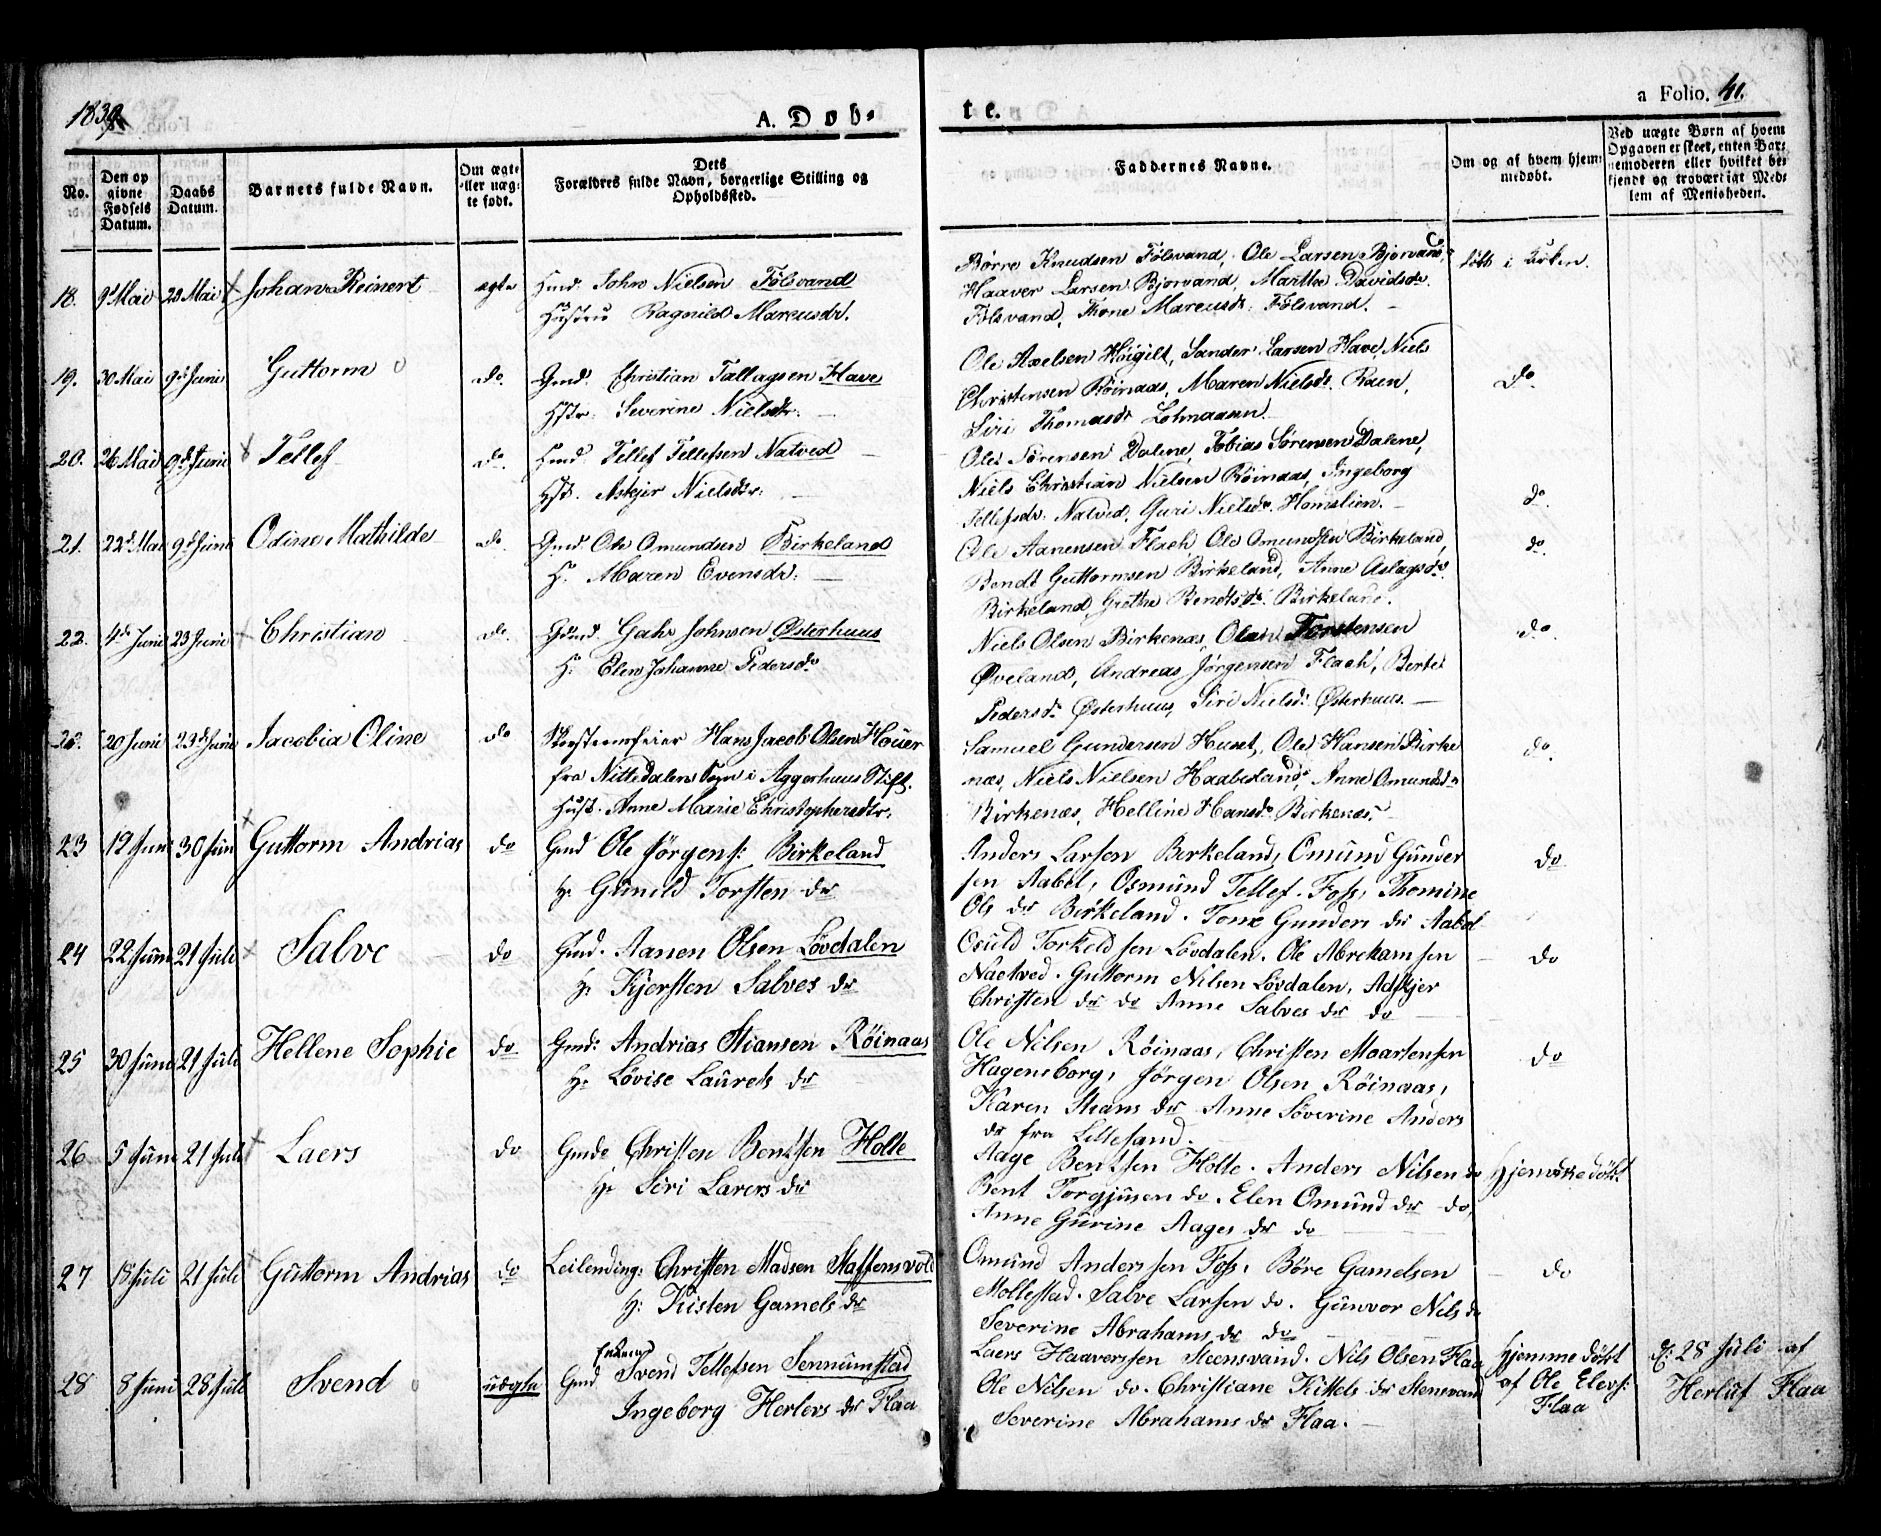 1839
A. Døb-
te.
a Folio. 41.
No.
Den op
givne
Fødsels
Datum.
Daabs
Datum.
Barnets fulde Navn.
Om ægte
eller uæg-
te født.
Dets
Forældres fulde Navn, borgerlige Stilling og
Opholdssted.
Faddernes Navne.
Om og af hvem hjem-
medøbt.
Ved uægte Børn af hvem
Opgaven er skeet, enten Bar-
nemoderen eller hvilket be-
kjendt og troværdigt Med-
lem af Menigheden.
18. 9d Mai 23 Mai Johan Reinert ægte Gmd. John Nielsen Fölsvand
Hustru Ragnild Marcusdr.
Börre Knudsen Fölsvand, Ole Larsen Bjorvand, döbt i Kirken.
Haaver Larsen Bjorvand, Marthe Davidsdr.
Fölsvand, Thone Marcusdr. Fölsvand.
19. 30 Mai 9d Juni Guttorm do. Gmd. Christian Tallagsen Have
Hstr. Severine Nielsdr.
Ole Axelsen Höigilt, Sander Larsen Have, Niels
Christensen Röinaas, Maren Nielsdr. Raen, do.
Siri Thomasdr
20. 26 Mai 9d Juni Tellef do. Gmd. Tellef Tellefsen Natved
Hst. Askjer Nielsdtr.
Ole Sörensen Dalene, Tobias Sörensen Dalene,
Niels Christian Nielsen Röinaas, Ingeborg
Tellefsdr. Natved, Guri Nielsdr. Homslien. do.
21. 22d Mai 9d Juni Odine Mathilde do. Gmd. Ole Omundsen Birkeland
H. Maren Evensdr.
Ole Aanensen Flach, Ole Omundsen Birkeland, do.
Bendt Guttormsen Birkeland, Anne Aslagsdr.
Birkeland, Grethe Bendtsdr. Birkeland.
22. 4de Juni 23 Juni Christian do. Gmd. Gahr Johnsen Østerhuus
H. Elen Johanne Pedersdr
Niels Olsen Birkenæs, Olav Torstensen do.
Øveland, Andreas Jörgensen Flach, Berte
Pedersdr. Østerhuus, Siri Nielsdr. Østerhuus.
20 Juni 23d Juni Jacobia Oline do Skorsteensfeier Hans Jacob Olsen Houer
fra Nittedalens Sogn i Aggerhuus Stift.
Hust. Anne Marie Christophersdtr.
Samuel Gundersen Huset, Ole Hansen Birke do.
næs, Niels Nielsen Haabesland, Anne Omundsdr
Birkenæs, Helline Hansdr. Birkenæs.
23 19 Juni 30 Juni Guttorm Andrias do Gmd Ole Jörgens: Birkeland
H: Gunild Torsten dr
Anders Larsen Berkeland, Omund Gunder do
sen Aaböl, Osmund Tellef. Foss, Thomine
Ols dr Birkeland. Tone Gunders dr Aaböl
24 22 Juni 21 Juli Salve do Gmd. Aanen Olsen Lövdalen
H: Kjersten Salves dr
Osuld Torkeldsen Lövdalen. Ole Abrehamsen do
Naetved. Guttorm Nilsen Lövdalen, Adskjer
Christen dr do Anne Salves dr do
25 30 Juni 21 Juli Hellene Sophie do Gmd: Andrias Stiansen Röinaas
H: Lövise Laurets dr
Ole Nilsen Röinaas, Christen Moartensen do
Hagensborg, Jörgen Olsen Röinaas,
Karen Stians dr Anne Söverine Anders
dr fra Lillesand.
26 5 Juni 21 Juli Laers do Gmd. Christen Bentsen Holte
H: Siri Larers dr
Aage Bentsen Holte. Anders Nilsen do Hjemme döbt
Bent Torgjusen do. Elen Omund dr do,
Anne Gurine Aages dr do
27 18 Juli 21 Juli Guttorm Andrias do Leilending: Christen Madsen Staffensvold
H: Kisten Gamels dr
Omund Andersen Foss, Böre Gamelsen do
Mollestad. Salve Larsen do. Gunvor Nils do
Severine Abrahams dr do
28 8 Juni 28 Juli Svend uægte Gmd Enkem Svend Tellefsen Sennumstad
Ingeborg Herlevs dr Flaa
Laers Haaverssen Steensvand. Nils Olsen Flaa Hjemme döbt d: 28 Juli af
Ole Nilsen do. Christiane Kittels dr Stensvand af Ole Elevs: Herluf Flaa
Severine Abrahams dr Flaa. Flaa